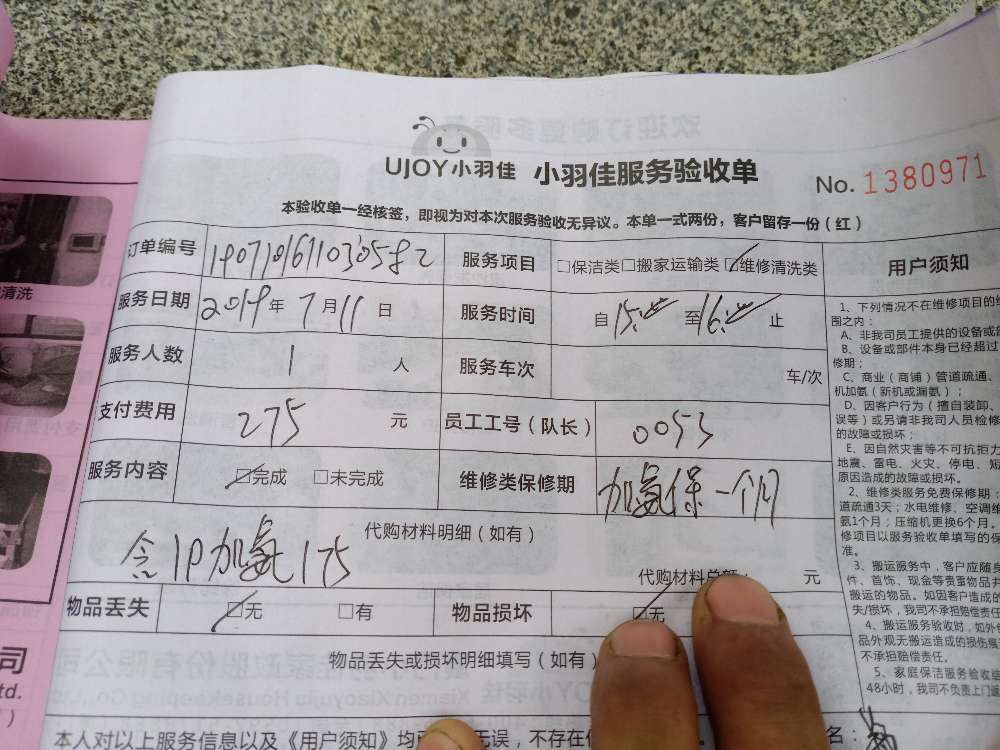 UJOY小羽佳 小羽佳服务验收单 No. 1380971
本验收单一经核签，即视为对本次服务验收无异议。本单一式两份，客户留存一份（红）
订单编号 服务项目 □保洁类□搬家运输类☑维修清洗类
服务日期 2019年7月11日 服务时间 自15:00至16:00止
服务人数 1人 服务车次 车/次
支付费用 275元 员工工号（队长） 0053
服务内容 ☑完成 □未完成 维修类保修期 加氨保一个月
代购材料明细（如有）
含1P加氨175
代购材料总额： 元
物品丢失 ☑无 □有 物品损坏 ☑无
物品丢失或损坏明细填写（如有）
本人对以上服务信息以及《用户须知》均已 无误，不存在 名：
用户须知
1、下列情况不在维修项目的
围之内：
A、非我司员工提供的设备或
B、设备或部件本身已经超过
修期；
C、商业（商铺）管道疏通、
机加氨（新机或漏氨）；
D、因客户行为（擅自装卸、
误等）或另请非我司人员检修
的故障或损坏；
E、因自然灾害等不可抗拒力
地震、雷电、火灾、停电、短
原因造成的故障或损坏。
2、维修类服务免费保修期：
道疏通3天；水电维修、空调维
氨1个月；压缩机更换6个月。
修项目以服务验收单填写的保
准。
3、搬运服务中，客户应随身
件、首饰、现金等贵重物品并
搬运的物品。如因客户造成的
失/损坏，我司不承担赔偿责任
4、搬运服务验收时，如外包
品外观无搬运造成的损伤痕
不承担赔偿责任。
5、家庭保洁服务验收
48小时，我司不负责上门
清洗
司
td.